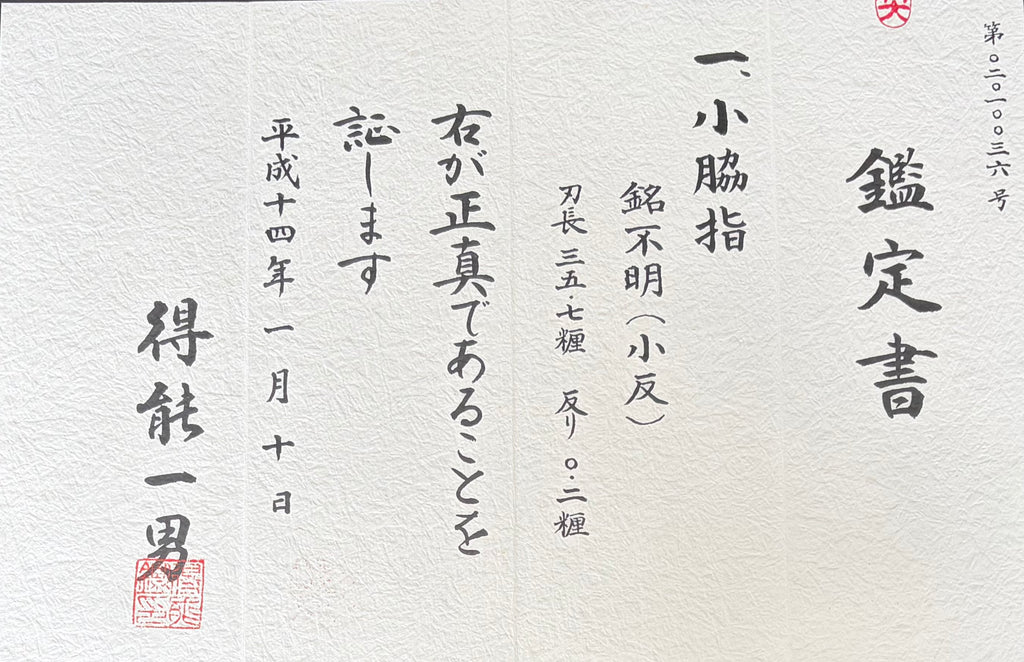 第〇二〇一〇〇三六号
鑑定書
一、小脇指
銘不明(小反)
刃長 三五・七糎 反り 〇・二糎
右が正真であることを
証します
平成十四年一月十日
得能一男